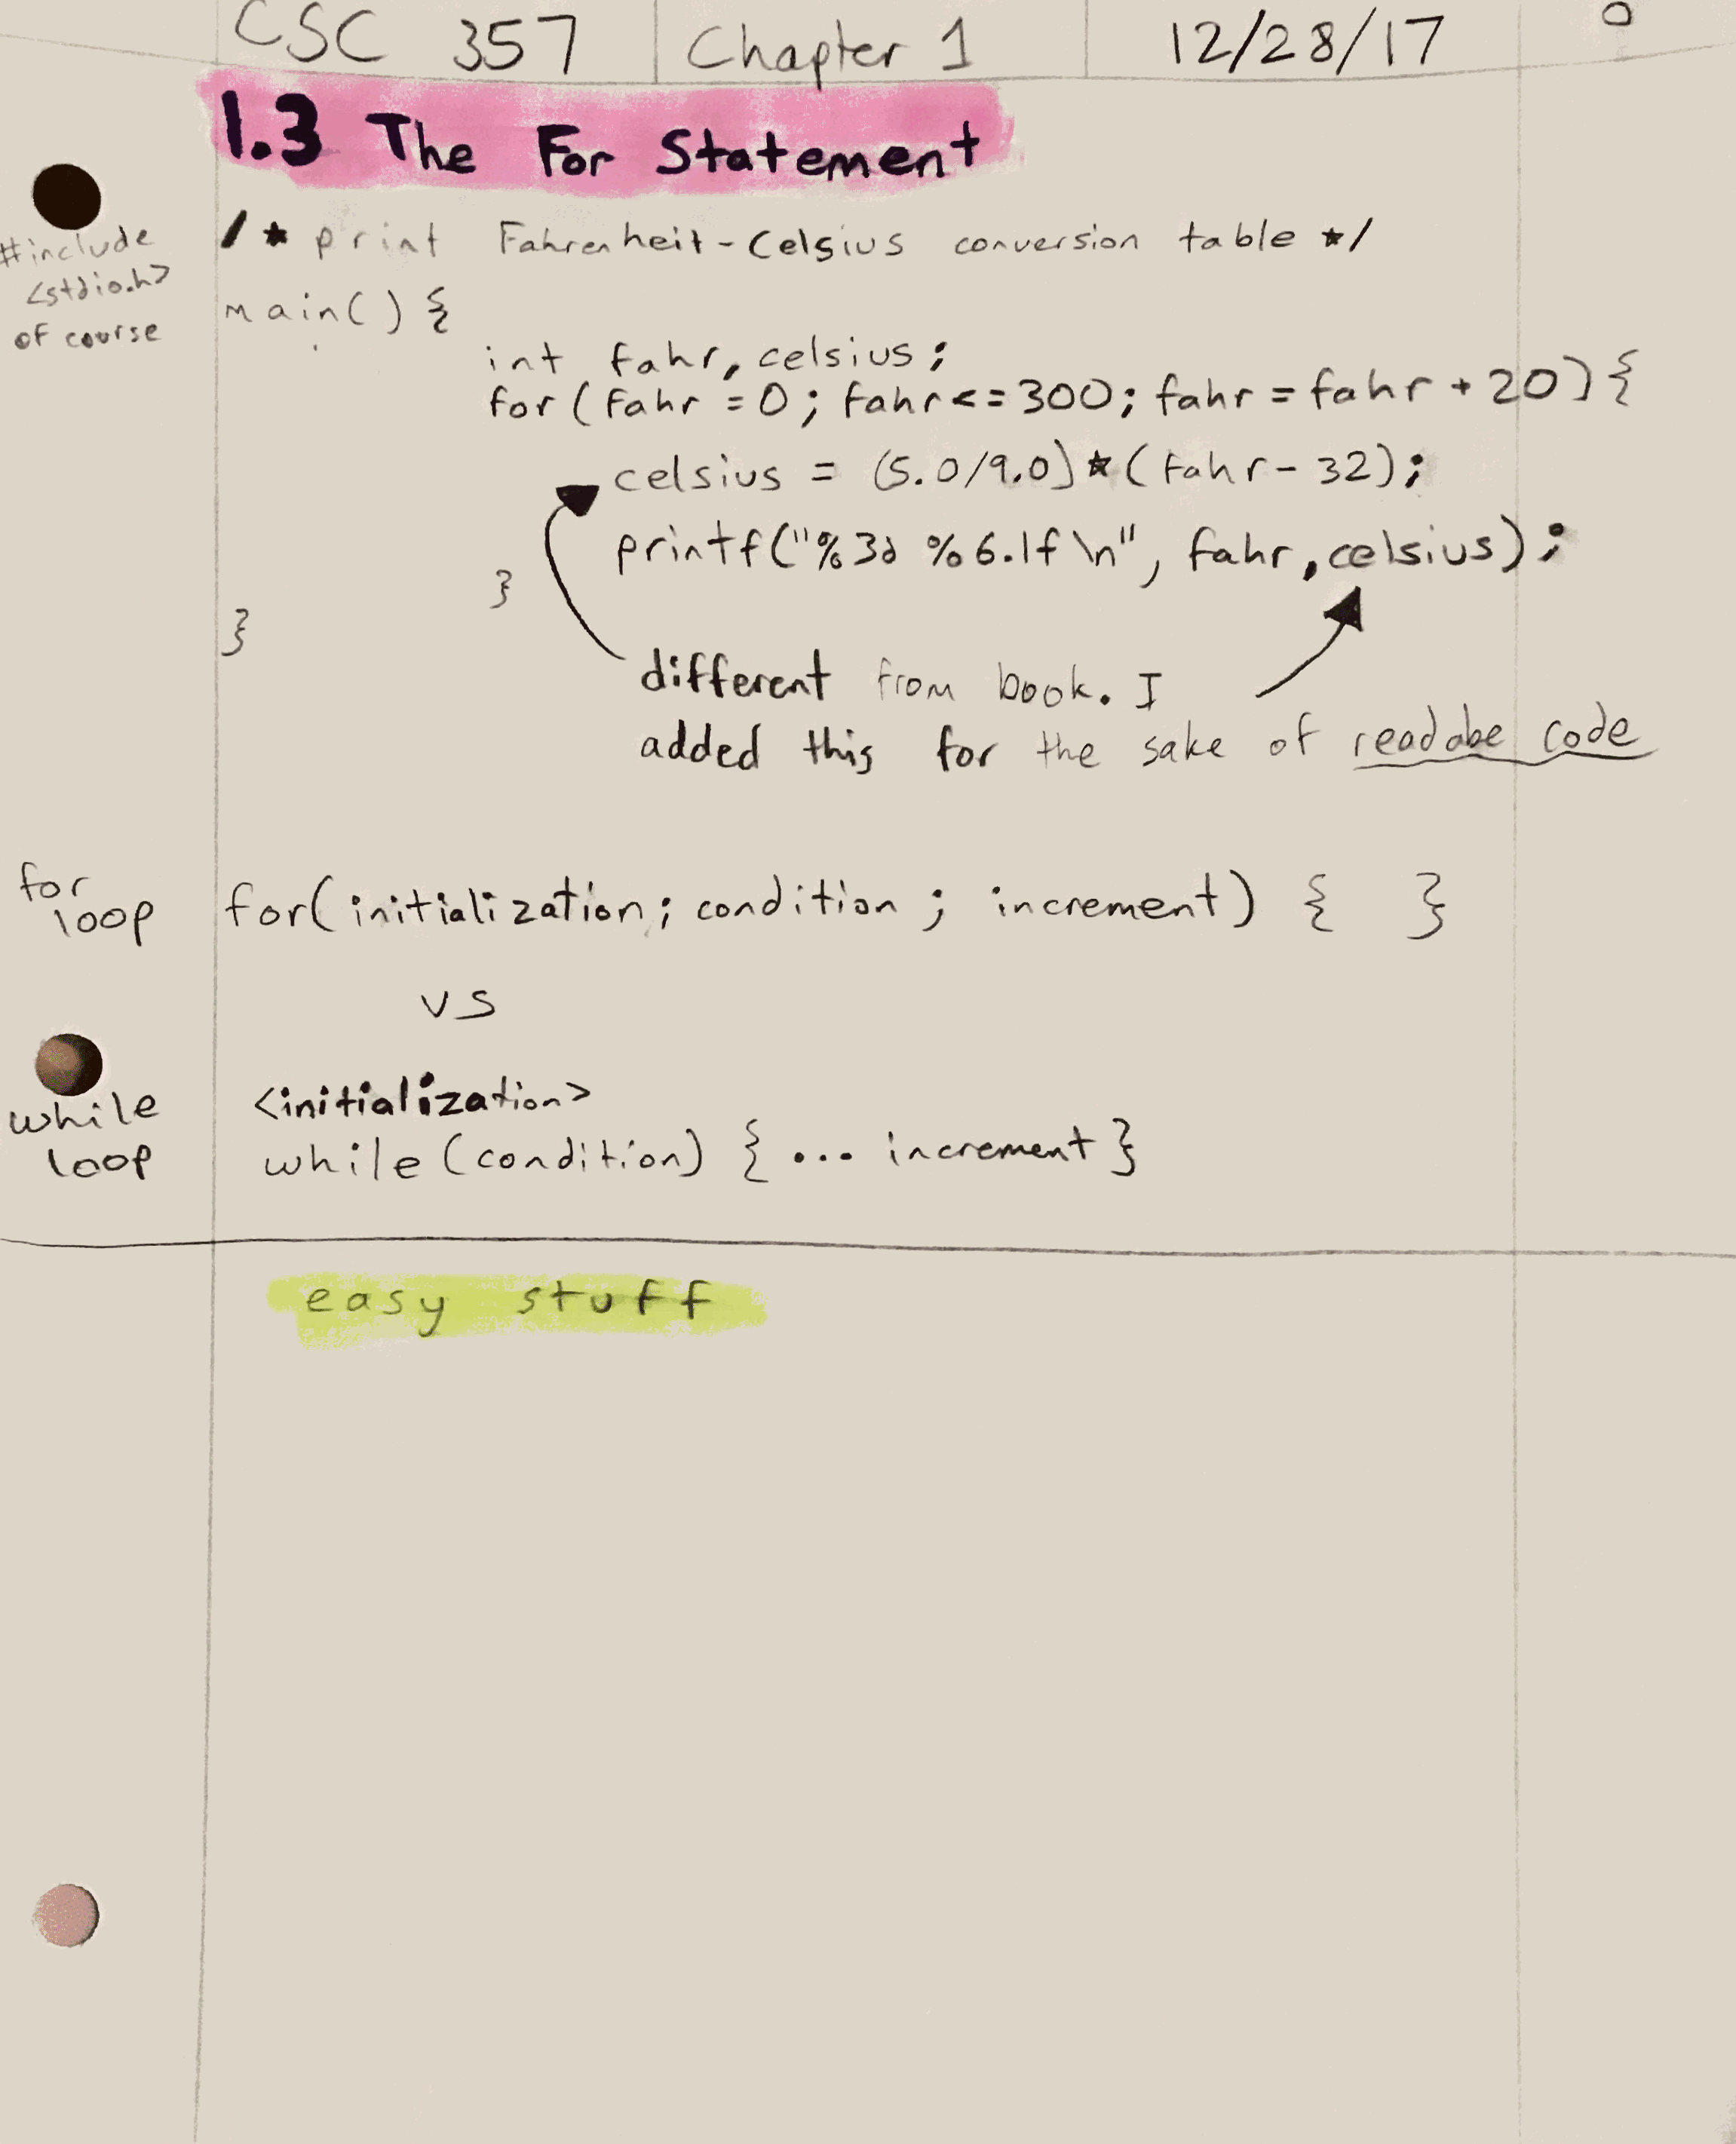 CSC 357 Chapter 1 12/28/17
1.3 The For Statement
#include
<stdio.h>
of course
/* print Fahrenheit-Celsius conversion table */
main() {
int fahr, celsius;
for(fahr = 0; fahr <= 300; fahr = fahr + 20) {
celsius = (5.0/9.0)*(fahr - 32);
printf("%3d %6.1f \n", fahr, celsius);
}
}
different from book. I
added this for the sake of readabe code
for
loop
for(initialization; condition; increment) { }
vs
while
loop
<initialization>
while(condition) { ... increment }
easy stuff